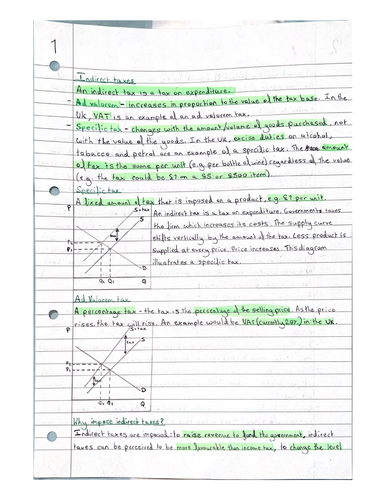 1
Indirect taxes
An indirect tax is a tax on expenditure.
- Ad valorem - increases in proportion to the value of the tax base. In the
UK, VAT is an example of an ad valorem tax.
- Specific tax - changes with the amount/volume of goods purchased, not
with the value of the goods. In the UK, excise duties on alcohol,
tobacco and petrol are an example of a specific tax. The amount
of tax is the same per unit (e.g. per bottle of wine) regardless of the value
(e.g. the tax could be $? on a $5 or $500 item).
Specific tax
A fixed amount of tax that is imposed on a product, e.g. $? per unit.
P
S+tax
S
An indirect tax is a tax on expenditure. Government taxes
the firm which increases its costs. The supply curve
shifts vertically by the amount of the tax. Less product is
supplied at every price. Price increases. This diagram
illustrates a specific tax.
P₁
D
Q₁ Q
Ad Valorem tax
A percentage tax - the tax is the percentage of the selling price. As the price
rises, the tax will rise. An example would be VAT (currently 20%) in the UK.
P
S+tax
S
tax
P₁
D
Q₁ Q
Why impose indirect taxes?
Indirect taxes are imposed: to raise revenue to fund the government, indirect
taxes can be perceived to be more favourable than income tax, to change the level